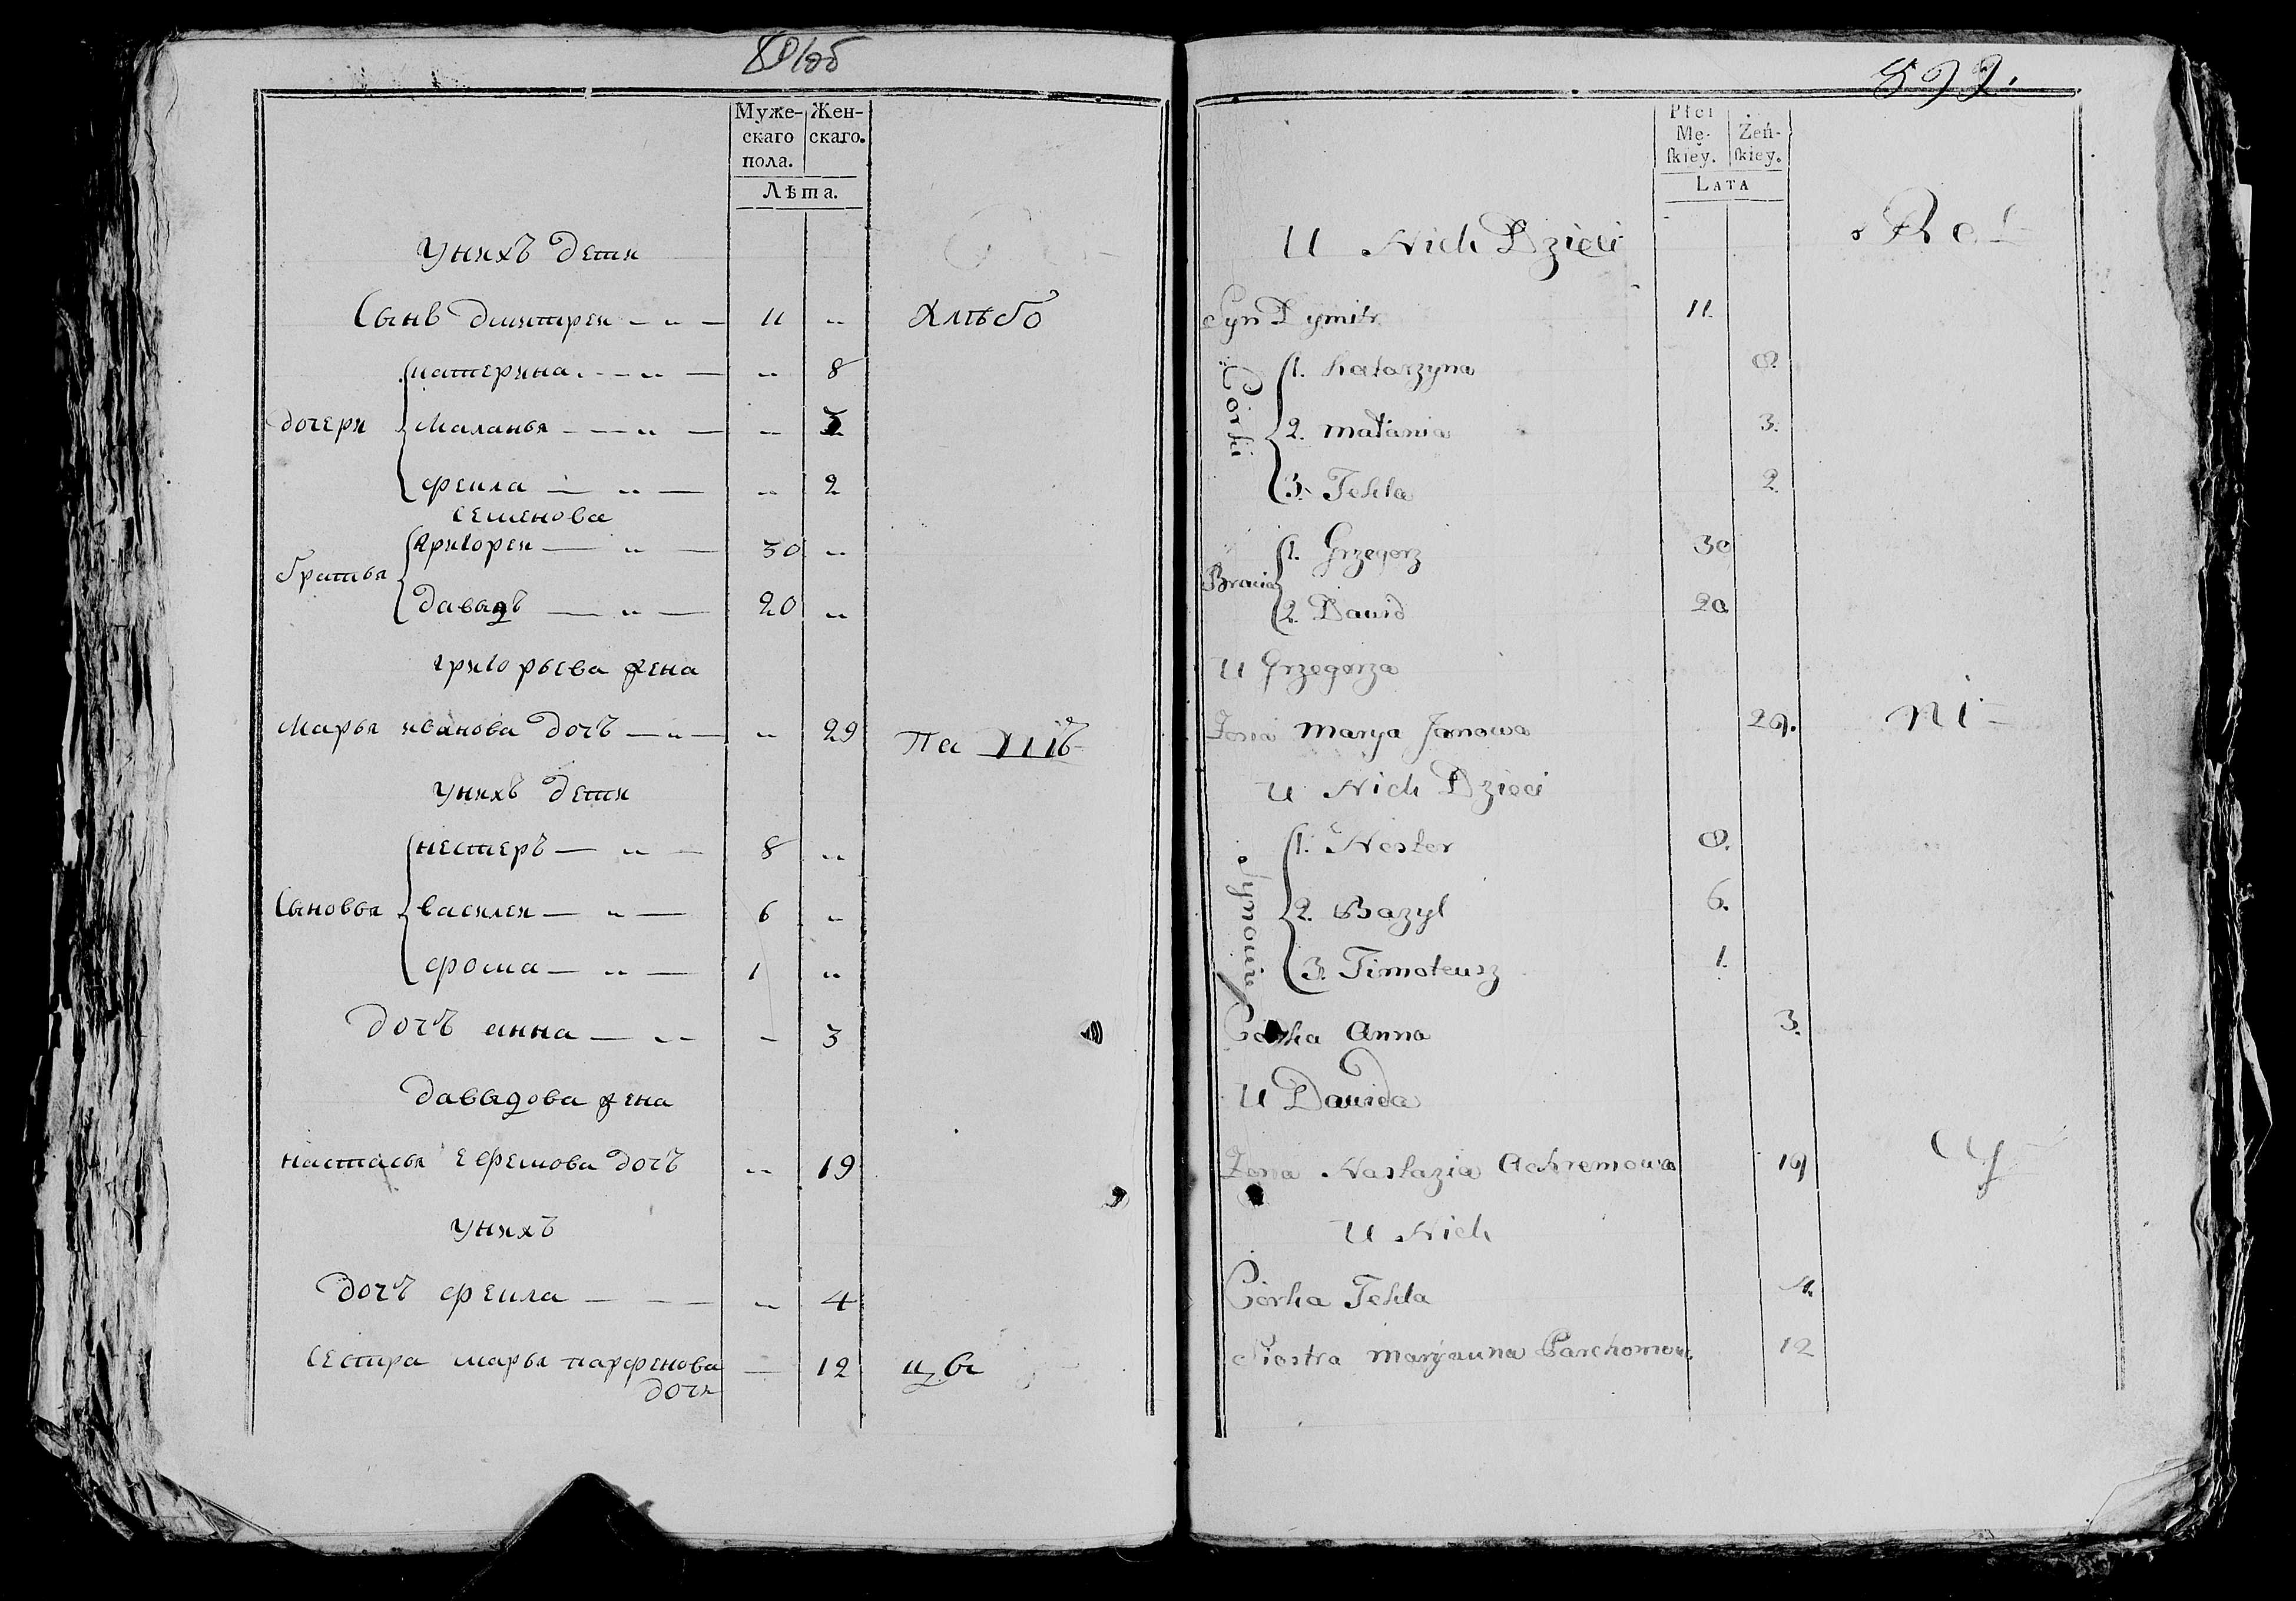 Муже-
скаго
пола.
Жен-
скаго.
Лѣта.
унихъ дети
Сынъ дмитреи — „ — 11 „
хлѣбо
дочери
катерина — „ — „ 8
Маланья — „ — „ 3
фекла — „ — „ 2
семенова
братья
григореи — „ — 30 „
давыдъ — „ — 20 „
григорьева жена
Марья иванова дочь — „ — „ 29
па
унихъ дети
Сыновья
нестеръ — „ — 8 „
василеи — „ — 6 „
фома — „ — 1 „
дочь анна — „ 3
давыдова жена
настасья ефремова дочь „ 19
унихъ
дочь фекла — „ 4
сестра марья парфенова — 12
дочь
892.
Płci
Mę-
ſkiey.
Żeń-
ſkiey.
LATA
U Nich Dzieci
Syn Dymitr 11.
Córki
1. Katarzyna 8.
2. Małania 3.
3. Tekla 2.
Bracia
1. Grzegorz 30
2. Dawid 20
U Grzegorza
Żona Marya Janowa 29.
ni
U Nich Dzieci
Synowie
1. Nester 8.
2. Bazyl 6.
3. Timoteusz 1.
Córka Anna 3.
U Dawida
Żona Nastazia Achremowa 19
U Nich
Córka Tekla 4.
Siostra Maryanna Parchomow. 12